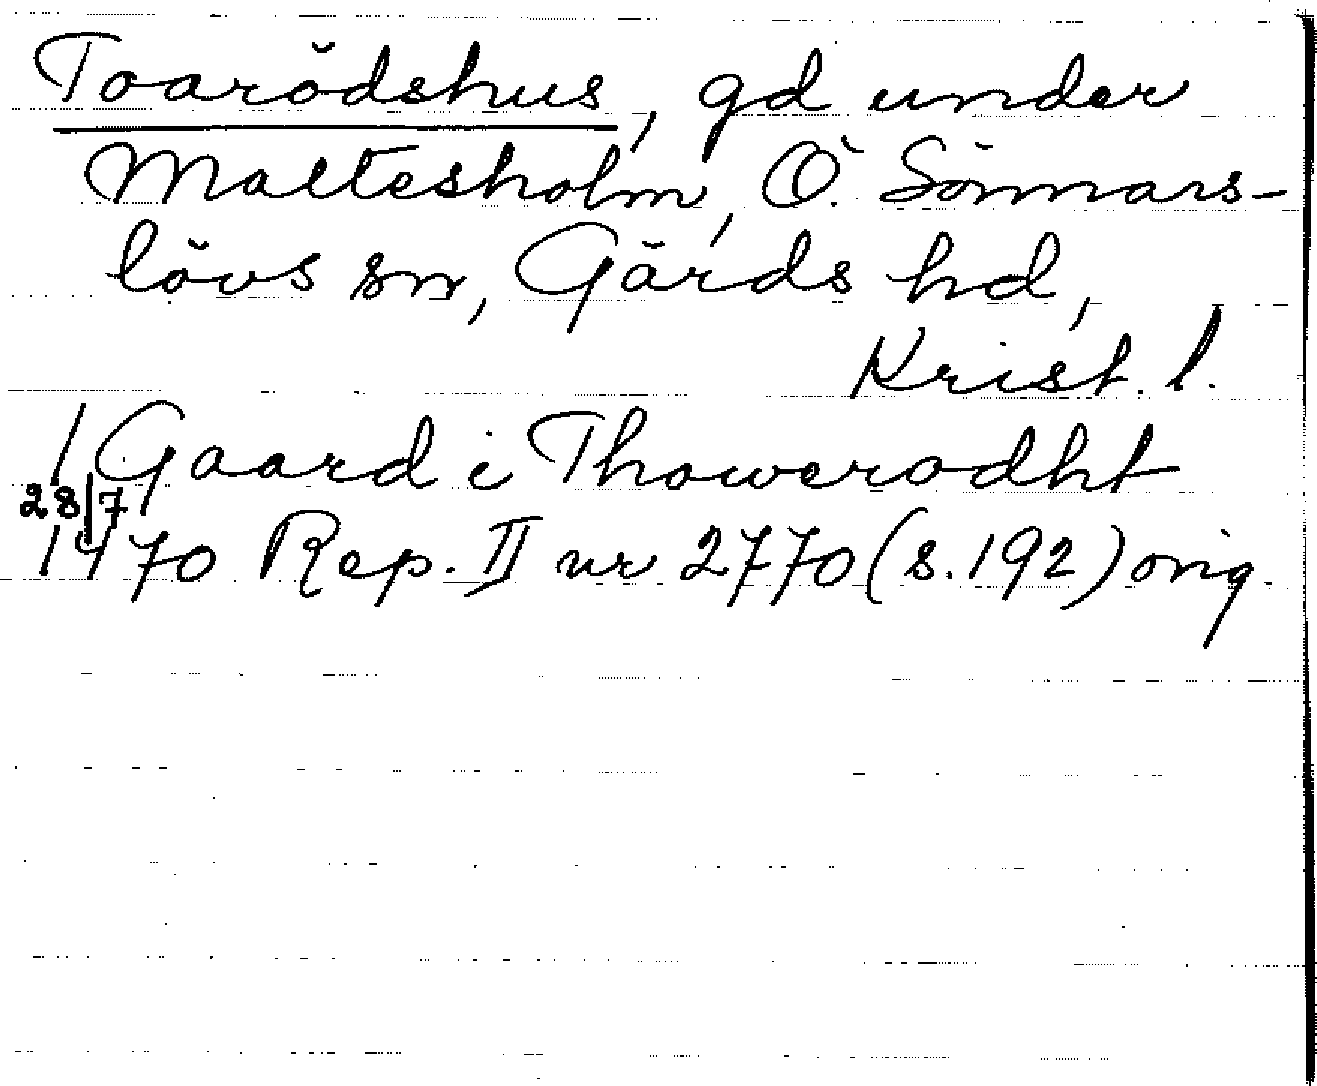 Toarödshus, gd under
Maltesholm, Ö. Sönnars-
lövs sn, Gärds hd,
Krist. l.
1 Gaard i Thowerodht
28/7
1470 Rep. II nr 2770 (s. 192) orig.